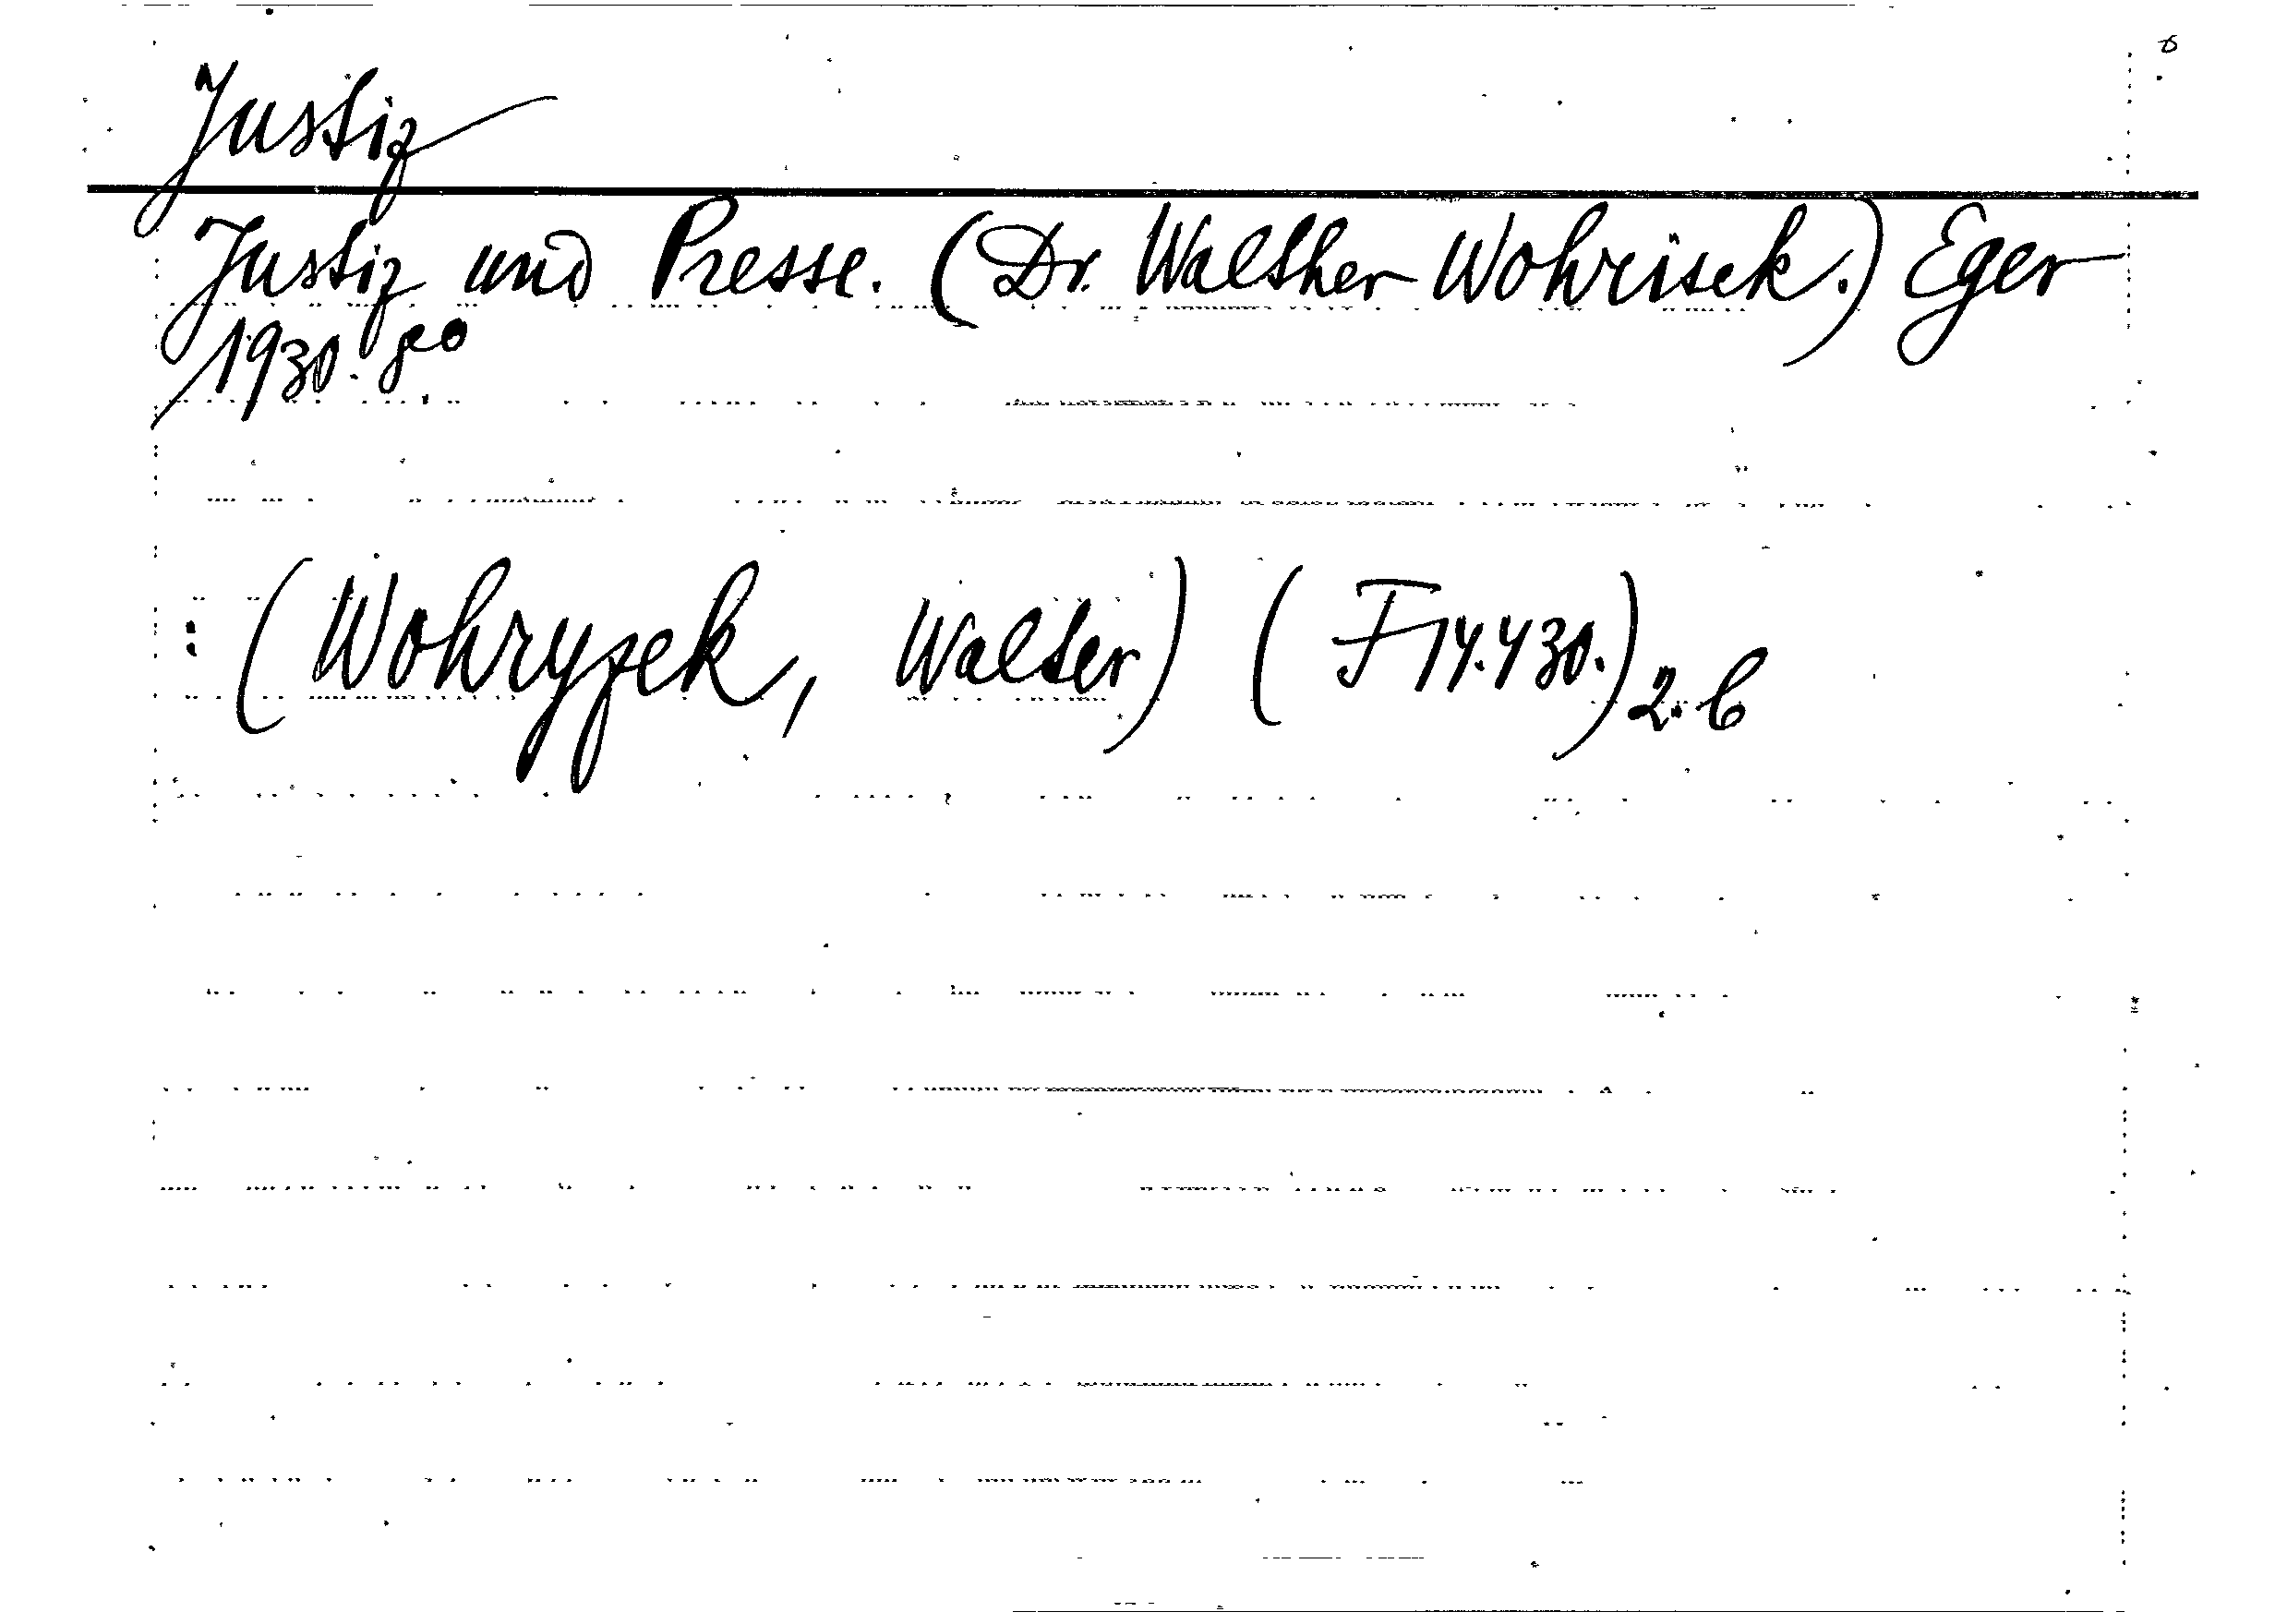 Justiz
Justiz und Presse. (Dr. Walther Wohrisek.) Eger
1930. 8°
: (Wohryzek, Walter) (F 14.430.) 2. b